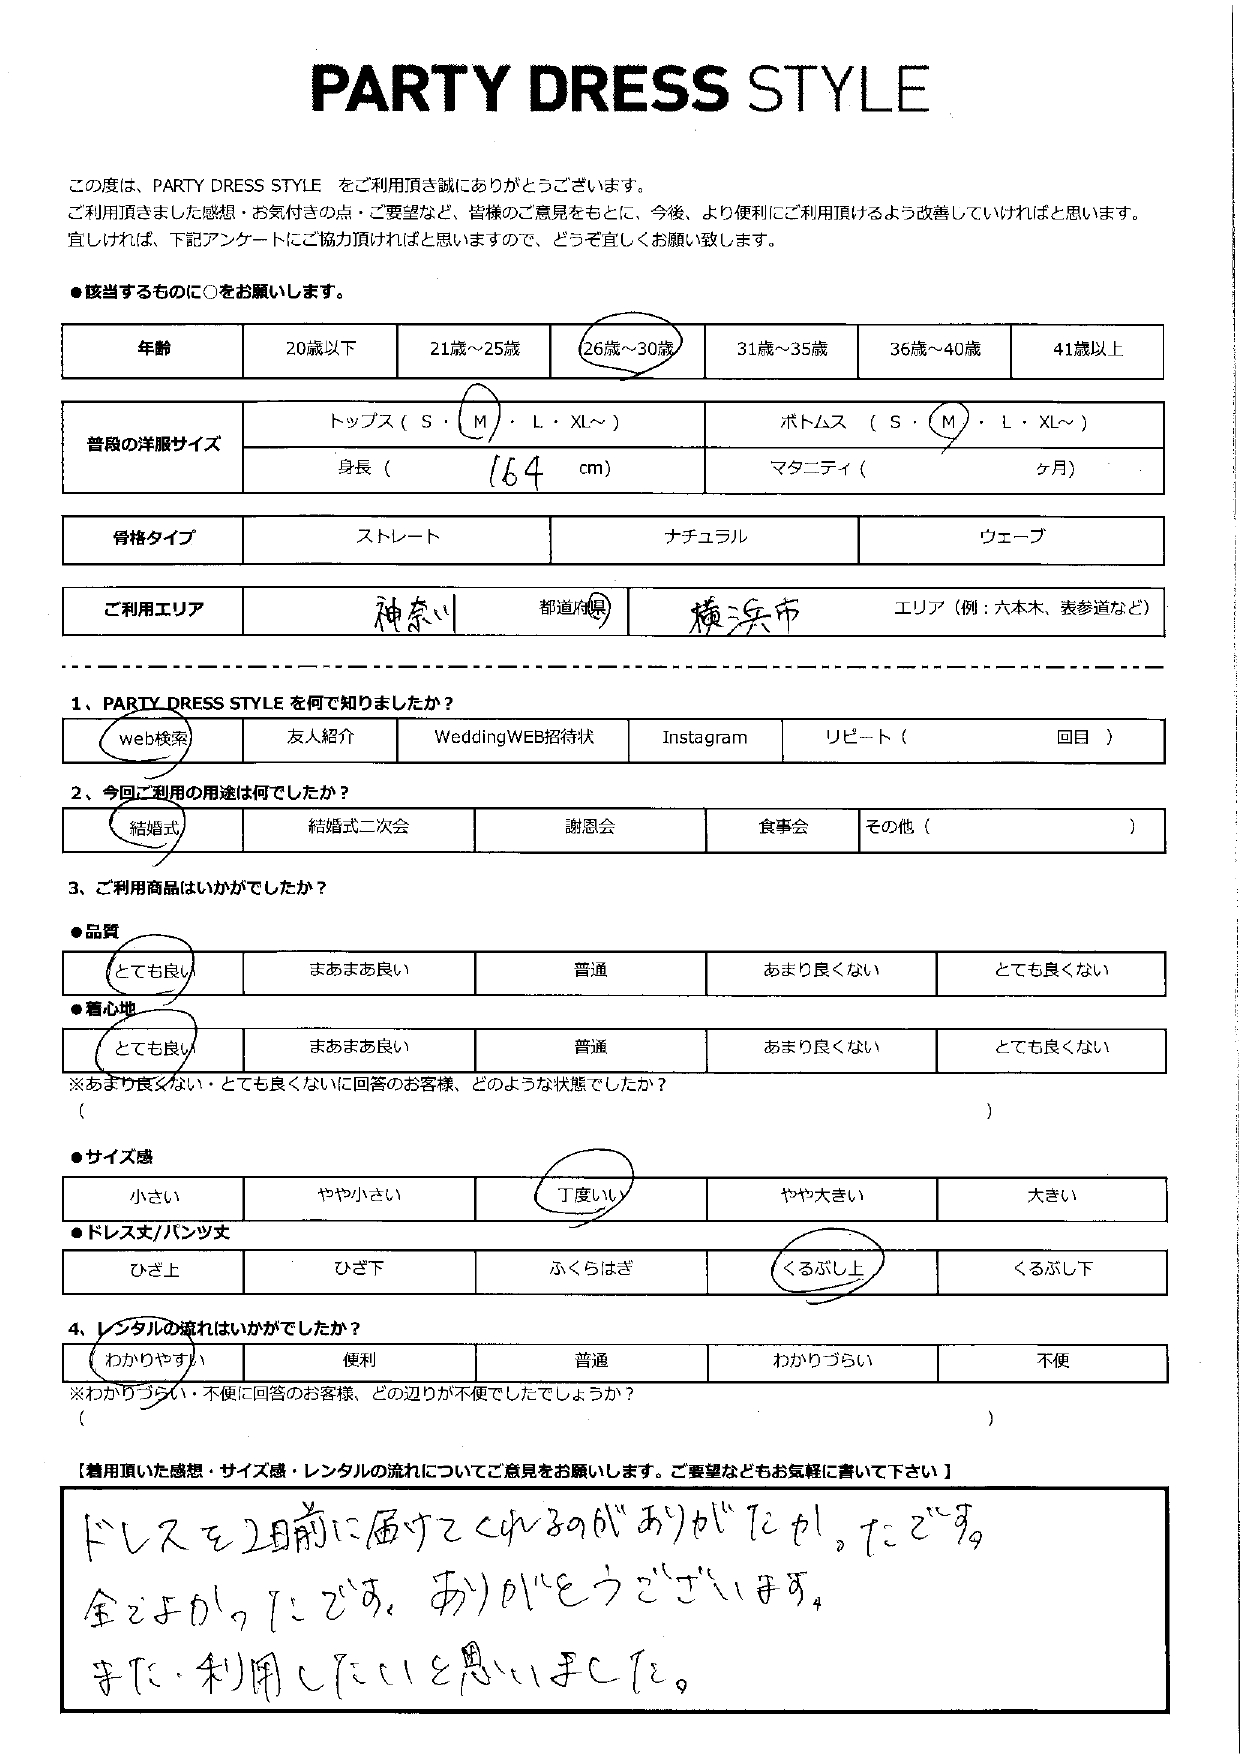 PARTY DRESS STYLE
この度は、PARTY DRESS STYLE をご利用頂き誠にありがとうございます。
ご利用頂きました感想・お気付きの点・ご要望など、皆様のご意見をもとに、今後、より便利にご利用頂けるよう改善していければと思います。
宜しければ、下記アンケートにご協力頂ければと思いますので、どうぞ宜しくお願い致します。
●該当するものに○をお願いします。
年齢 20歳以下 21歳～25歳 26歳～30歳 31歳～35歳 36歳～40歳 41歳以上
普段の洋服サイズ トップス ( S ・ M ・ L ・ XL～ ) ボトムス ( S ・ M ・ L ・ XL～ )
身長 ( 164 cm) マタニティ ( ヶ月)
骨格タイプ ストレート ナチュラル ウェーブ
ご利用エリア 神奈川 都道府県 横浜市 エリア（例：六本木、表参道など）
1、PARTY DRESS STYLE を何で知りましたか？
web検索 友人紹介 WeddingWEB招待状 Instagram リピート ( 回目 )
2、今回ご利用の用途は何でしたか？
結婚式 結婚式二次会 謝恩会 食事会 その他 ( )
3、ご利用商品はいかがでしたか？
●品質
とても良い まあまあ良い 普通 あまり良くない とても良くない
●着心地
とても良い まあまあ良い 普通 あまり良くない とても良くない
※あまり良くない・とても良くないに回答のお客様、どのような状態でしたか？
( )
●サイズ感
小さい やや小さい 丁度いい やや大きい 大きい
●ドレス丈/パンツ丈
ひざ上 ひざ下 ふくらはぎ くるぶし上 くるぶし下
4、レンタルの流れはいかがでしたか？
わかりやすい 便利 普通 わかりづらい 不便
※わかりづらい・不便に回答のお客様、どの辺りが不便でしたでしょうか？
( )
【着用頂いた感想・サイズ感・レンタルの流れについてご意見をお願いします。ご要望などもお気軽に書いて下さい】
ドレスを2日前に届けてくれるのがありがたかったです。
全てよかったです。ありがとうございます。
また利用したいと思いました。